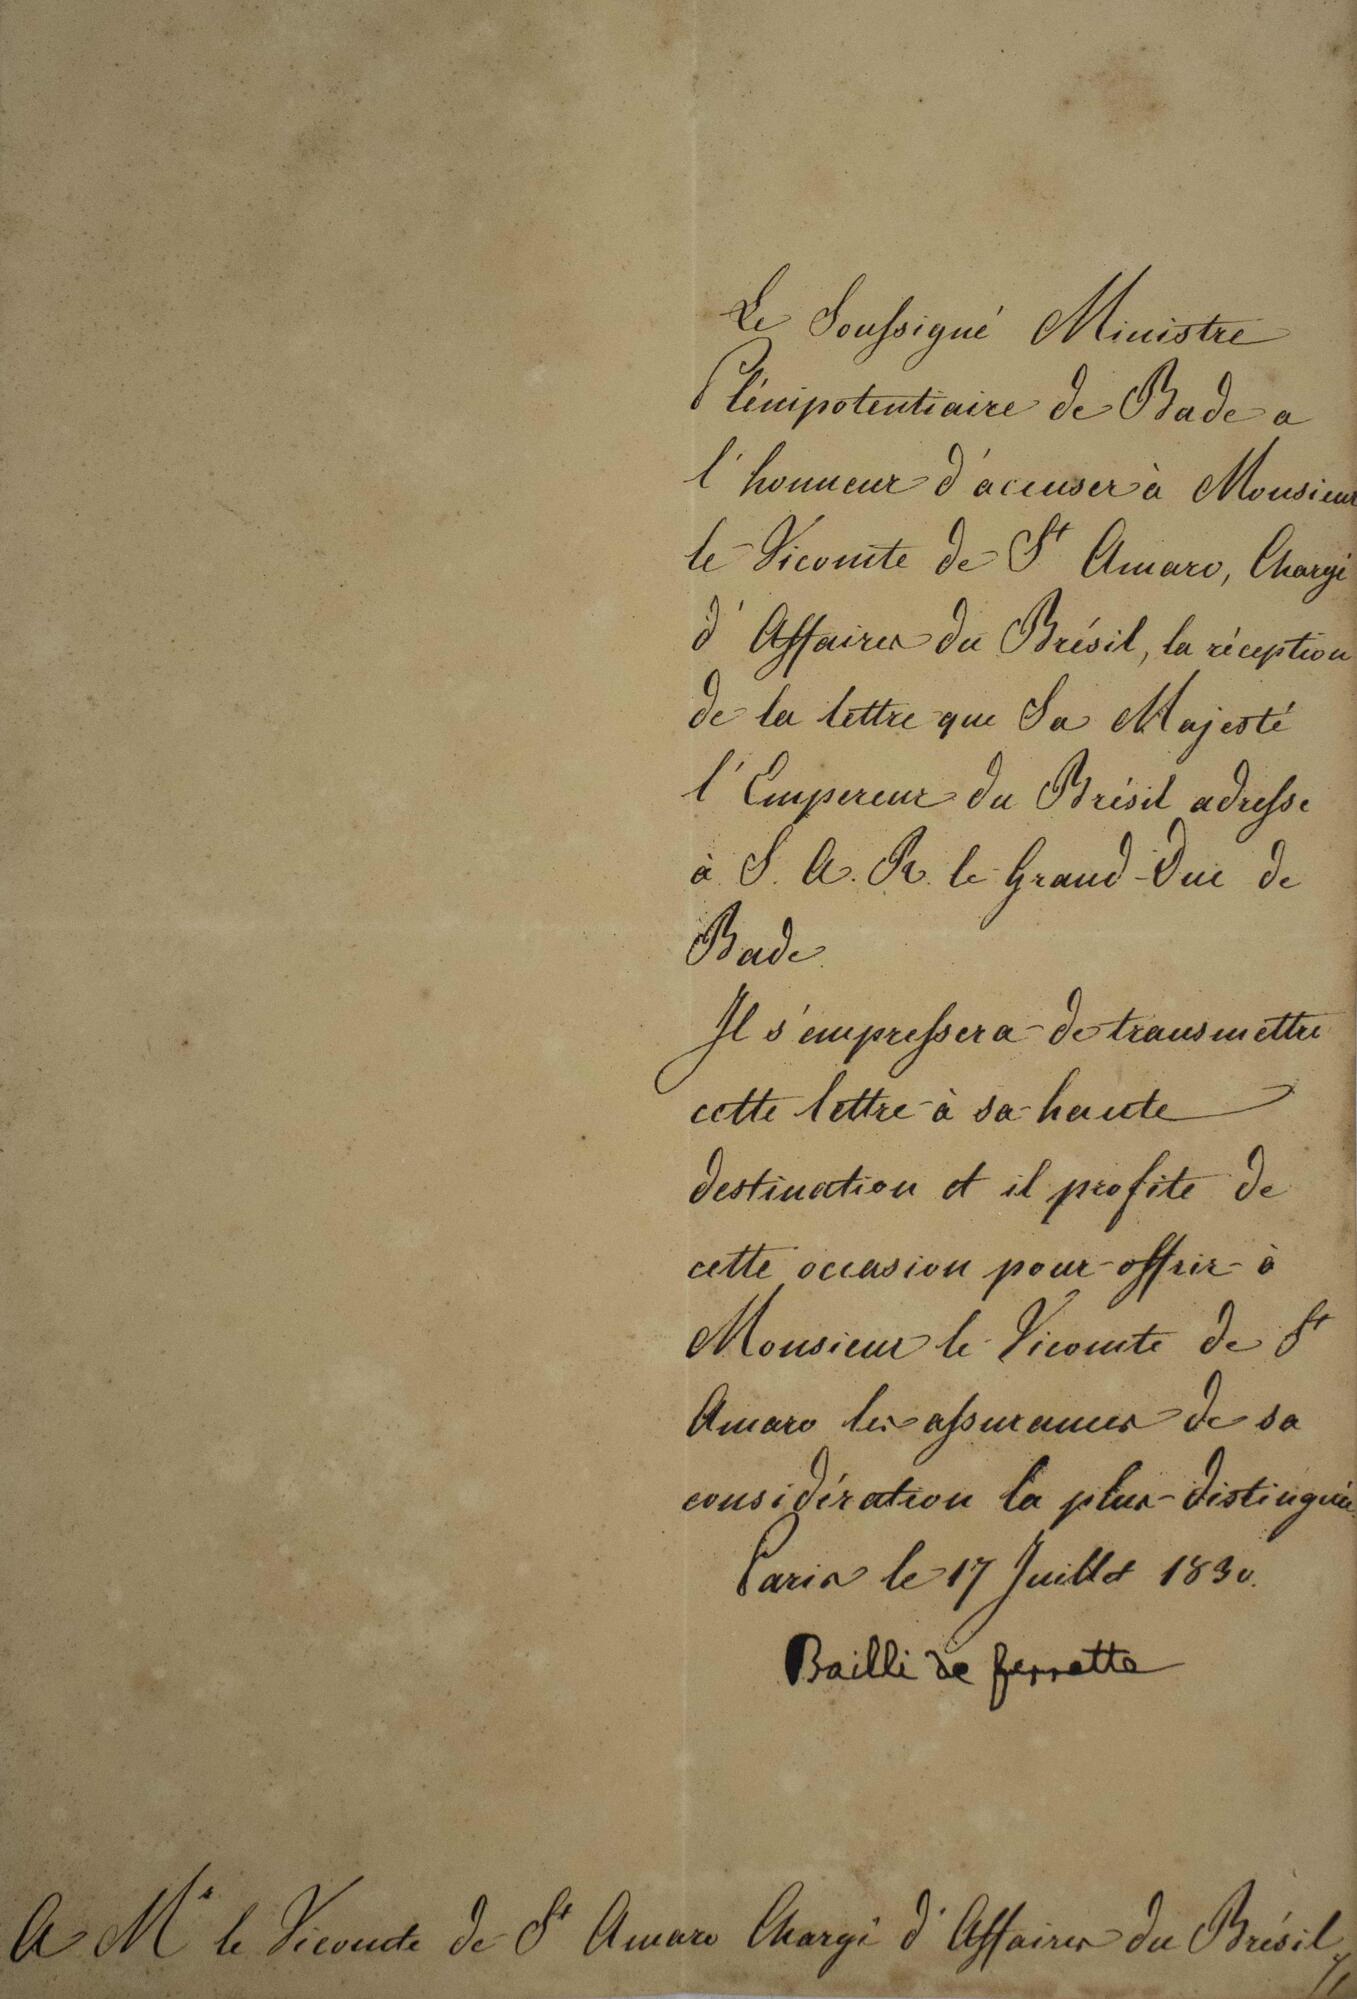 Le Soussigné Ministre
Plénipotentiaire de Bade a
l'honneur d'accuser à Monsieur
le Vicomte de St Amaro, Chargé
d'Affaires du Brésil, la réception
de la lettre que Sa Majesté
l'Empereur du Brésil adresse
à S. A. R. le Grand-Duc de
Bade.
Il s'empressera de transmettre
cette lettre à sa haute
destination et il profite de
cette occasion pour offrir à
Monsieur le Vicomte de St
Amaro les assurances de sa
considération la plus distinguée.
Paris le 17 Juillet 1830.
Bailli de ferrette
A Mr le Vicomte de St Amaro Chargé d'Affaires du Brésil